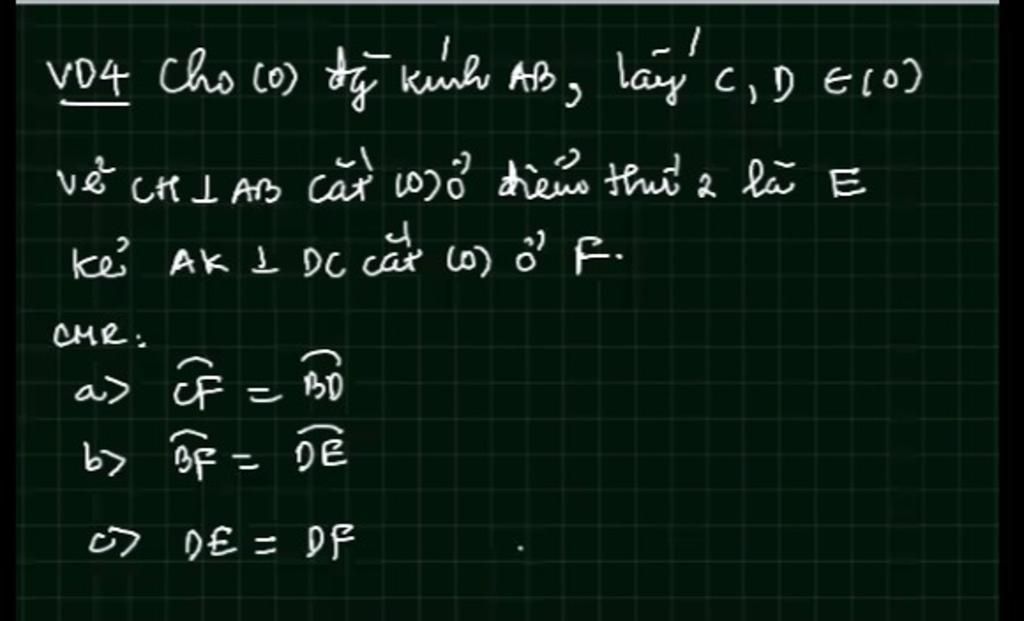 VD4 Cho (O) đg kính AB, lấy C, D ∈ (O)
vẽ CH ⊥ AB cắt (O) ở điểm thứ 2 là E
kẻ AK ⊥ DC cắt (O) ở F.
CMR:
a> \widehat{CF} = \widehat{BD}
b> \widehat{BF} = \widehat{DE}
c> DE = DF